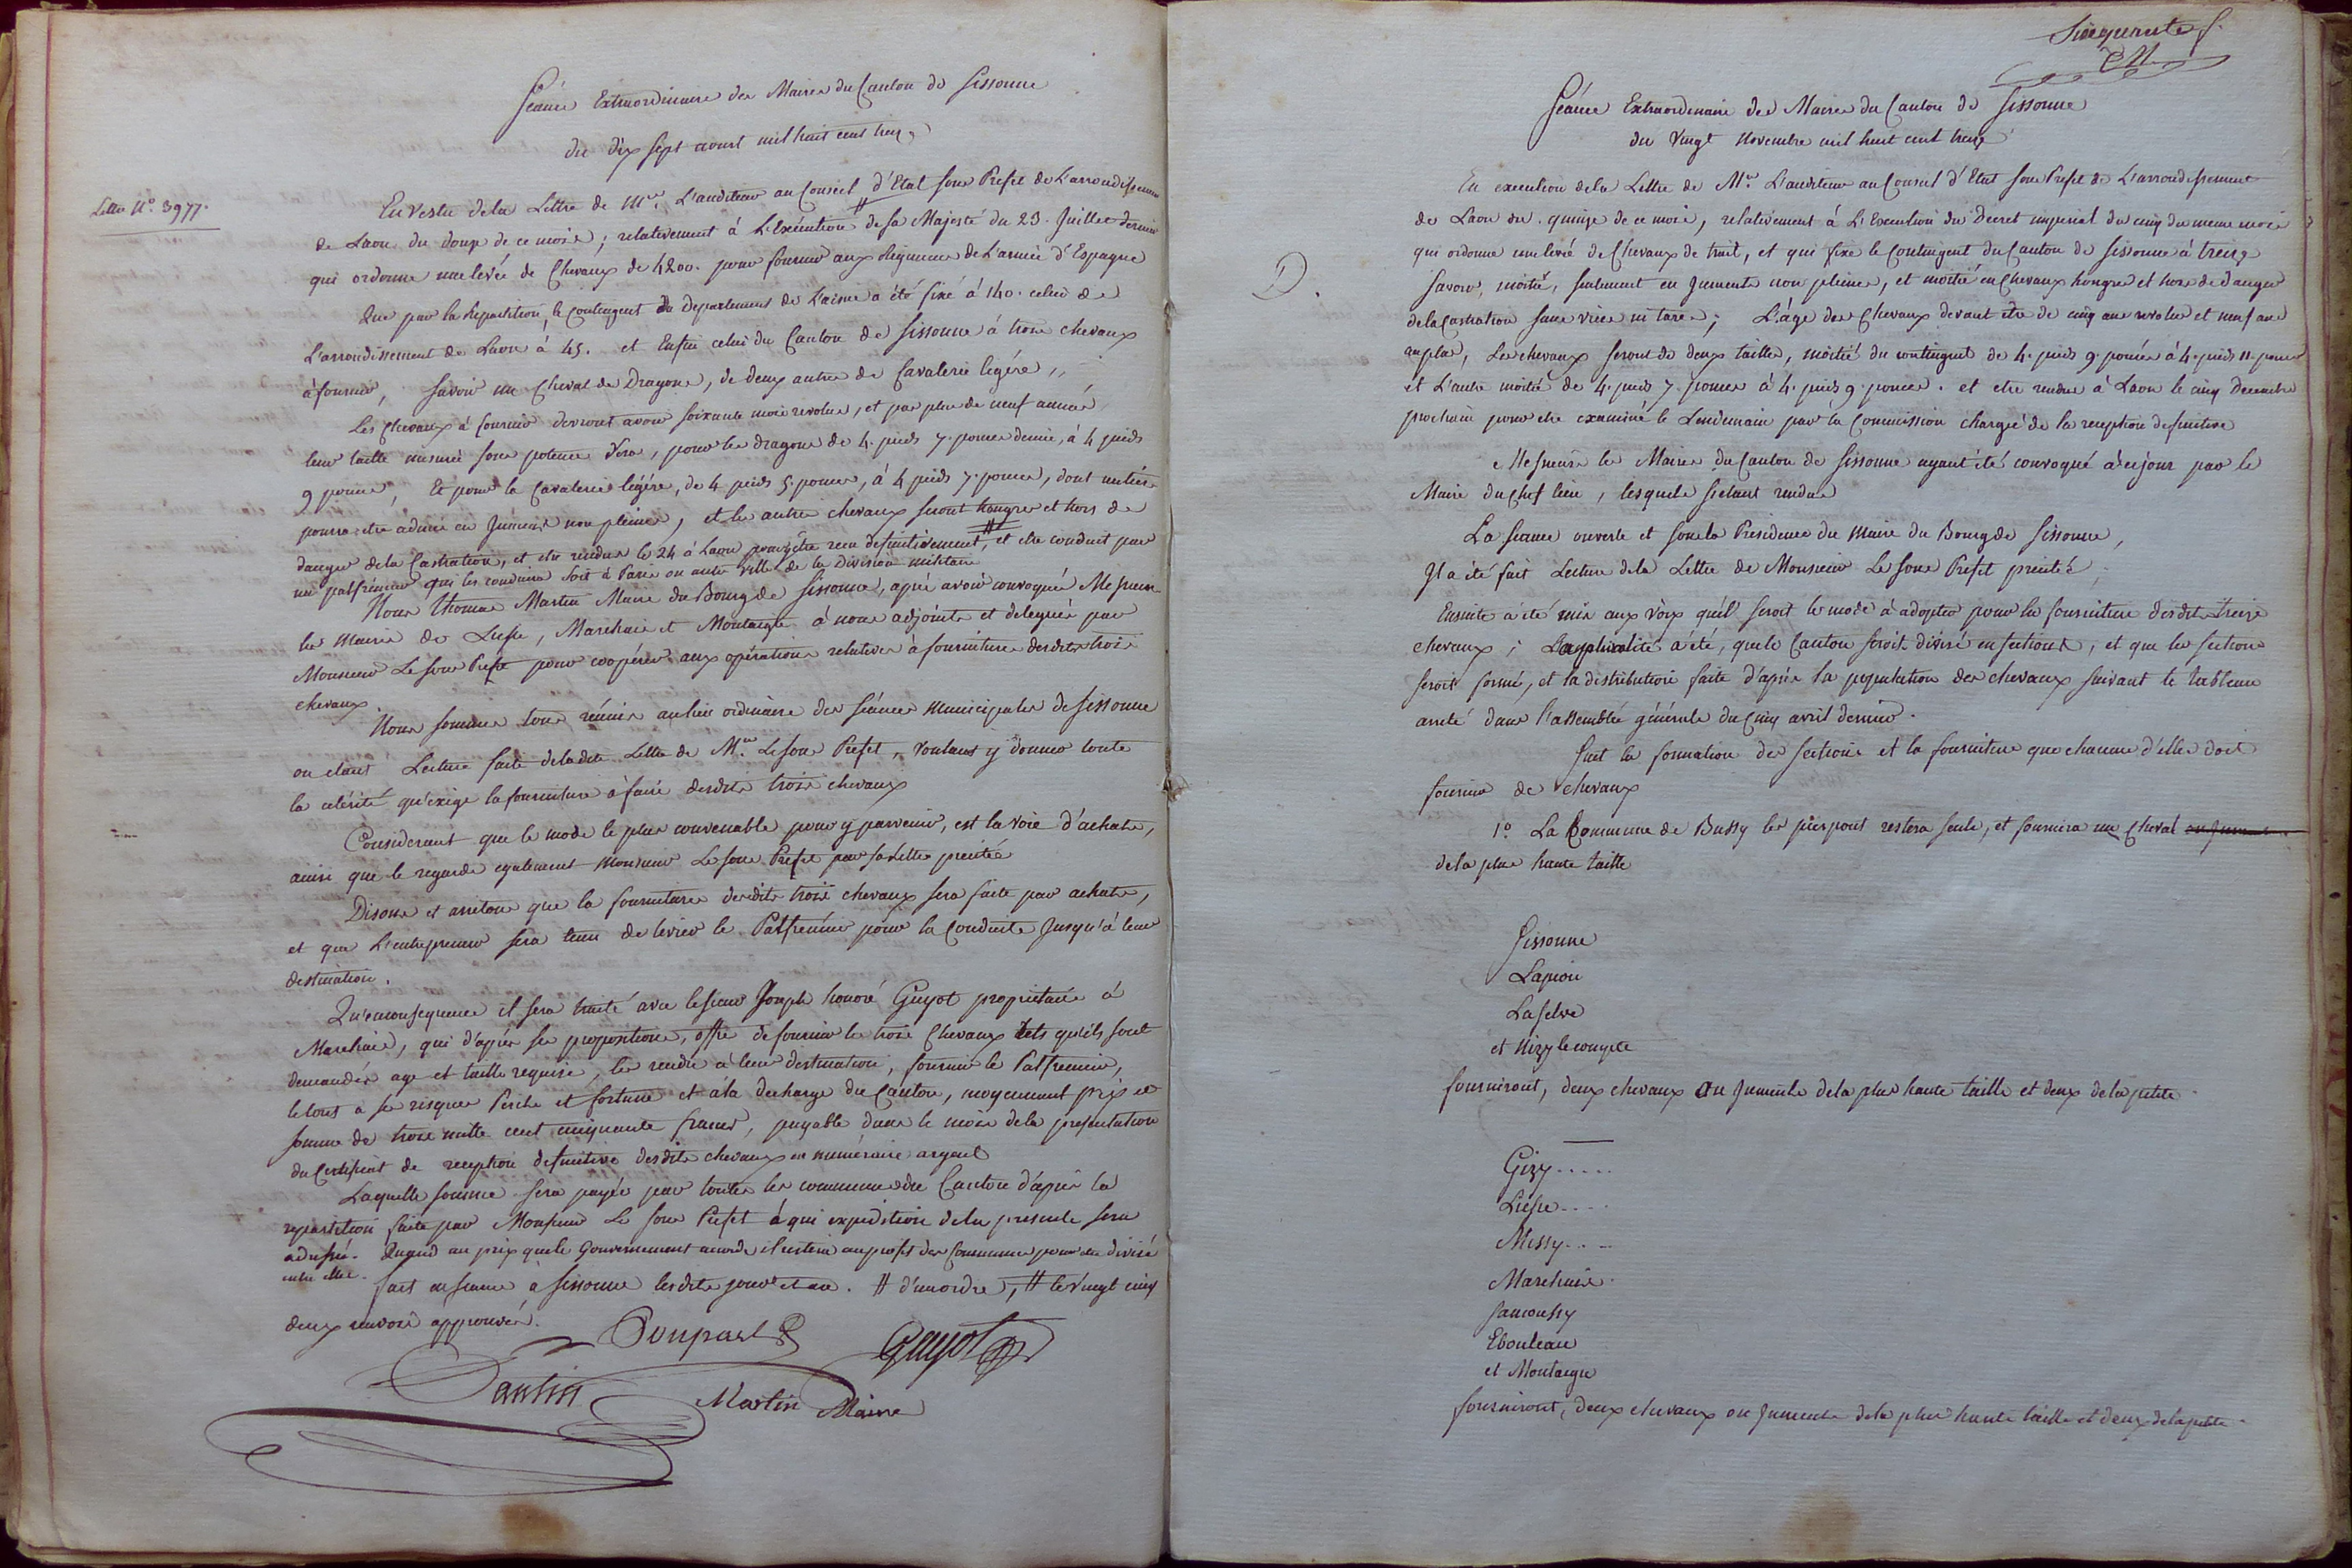 Séance Extraordinaire des Maires du Canton de Sissonne
du dix sept aoust mil huit cent treize
Lettre N.° 3977.
En vertu de la Lettre de M.r L'auditeur au Conseil d'Etat sous Prefet de L'arrondissement
de Laon du douze de ce mois ; relativement à L'Exécution # de sa Majesté du 23. Juillet dernier
qui ordonne une levée de Chevaux de 4200. pour fournir aux Régimens de L'armée d'Espagne
Que par la Repartition, le Contingent du Departement de L'aisne a été fixé à 140. celui de
L'arrondissement de Laon à 45. et Enfin celui du Canton de Sissonne à trois chevaux
à fournir, Savoir un Cheval de Dragons, de deux autres de Cavalerie légére,,
Les Chevaux à fournir devront avoir soixante mois revolus, et pas plus de neuf années
leur taille mesurée sous potence Sera, pour les dragons de 4. pieds 7. pouces demie, à 4 pieds
9 pouces, Et pour la Cavalerie légére, de 4 pieds 5. pouces, à 4 pieds 7. pouces, dont un tiers
pourra etre admis en Jumens non pleines, et les autres chevaux seront hongres et hors de
danger de la Castration, et etre rendus le 24 à Laon pour y être recu definitivement, # et etre conduit par
un palfrenier qui les conduira soit à Paris ou autre ville de la Division militaire
Nous Thomas Martin Maire du Bourg de Sissonne, aprés avoir convoqué Messieurs
les Maires de Liesse, Marchais et Montaigu à nous adjoints et delegués par
Monsieur Le sous Prefet pour coopérer aux opérations relatives à fourniture desdits trois
chevaux.
Nous sommes tous réunis au lieu ordinaire des séances Municipales de Sissonne
ou etant Lecture faite de ladite Lettre de M.r Le sous Prefet, voulant y donner toute
la célérité qu'exige la fourniture à faire desdits trois chevaux
Considerant que le mode le plus convenable pour y parvenir, est la voie d'achats,
ainsi que le regarde egalement Monsieur Le sous Prefet par sa Lettre precitée
Disons et arretons que la fourniture desdits trois chevaux sera faite par achats,
et que L'entrepreneur sera tenu de livrer le Palfrénier pour la Conduite Jusqu'à leur
destination.
Qu'en consequence il sera traité avec le sieur Joseph honoré Guyot proprietaire à
Marchais, qui d'aprés ses propositions, offre de fournir les trois Chevaux tels qu'ils sont
demandés age et taille requise, les rendre à leur destination, fournir le Palfrenier,
le tout à ses risques Perils et fortune et à la decharge du Canton, moyennant prix et
somme de trois mille cent cinquante francs, payable dans le mois de la presentation
du Certificat de reception definitive desdits chevaux en numéraire argent
Laquelle somme sera payée par toutes les communes du Canton d'aprés la
repartition faite par Monsieur Le sous Prefet à qui expedition de la presente sera
adressé. Quand au prix que le Gouvernement accorde il restera au profit des Communes pour etre divisé
entre elles.
fait en seance à Sissonne lesdits jour et an. # d'un ordre, # le vingt cinq
deux renvois approuvés.
Poupart
Guyot
Pantin
Martin Maire
Soixante f.
Séance Extraordinaire des Maires du Canton de Sissonne
du Vingt Novembre mil huit cent treize
En execution de la Lettre de M.r L'auditeur au Conseil d'Etat sous Prefet de L'arrondissement
de Laon du quinze de ce mois, relativement à L'Execution du Decret imperial du cinq du meme mois
qui ordonne une levée de Chevaux de trait, et qui fixe le Contingent du Canton de Sissonne à treize
D.
Savoir, moitié, seulement en Juments non pleines, et moitié en Chevaux hongres et hors de danger
de la Castration sans vices ni tares ; L'age des Chevaux devant etre de cinq ans revolus et neuf ans
au plus, Les chevaux seront de deux tailles, moitié du contingent de 4. pieds 9. pouces à 4. pieds 11. pouces
et L'autre moitié de 4. pieds 7. pouces à 4. pieds 9. pouces. et etre rendus à Laon le cinq Decembre
prochain pour etre examiné le Lendemain par la Commission chargée de la reception definitive
Messieurs les Maires du Canton de Sissonne ayant été convoqué à ce jour par le
Maire du Chef lieu, lesquels s'etant rendus
La seance ouverte et sous la Presidence du Maire du Bourg de Sissonne,
Il a été fait Lecture de la Lettre de Monsieur Le sous Prefet precitée,
Ensuite a été mis aux voix quel seroit le mode à adopter pour la fourniture desdits treize
chevaux ; La pluralité a été, que le Canton seroit divisé en sections, et que les sections
seroit formé, et la distribution faite d'aprés la population des chevaux suivant le tableau
arreté dans l'assemblée générale du Cinq avril dernier.
Suit la formation des sections et la fourniture que chacune d'elles doit
fournir de chevaux
1.° La Commune de Bussy les pierpont restera seule, et fournira un Cheval
de la plus haute taille
Sissonne
Lapion
La selve
et Nizy le compte
fourniront, deux chevaux ou Juments de la plus haute taille et deux de la petite
Gizy.....
Liesse....
Missy....
Marchais.
Samoussy
Ebouleau
et Montaigu
fourniront, deux chevaux ou Juments de la plus haute taille et deux de la petite.